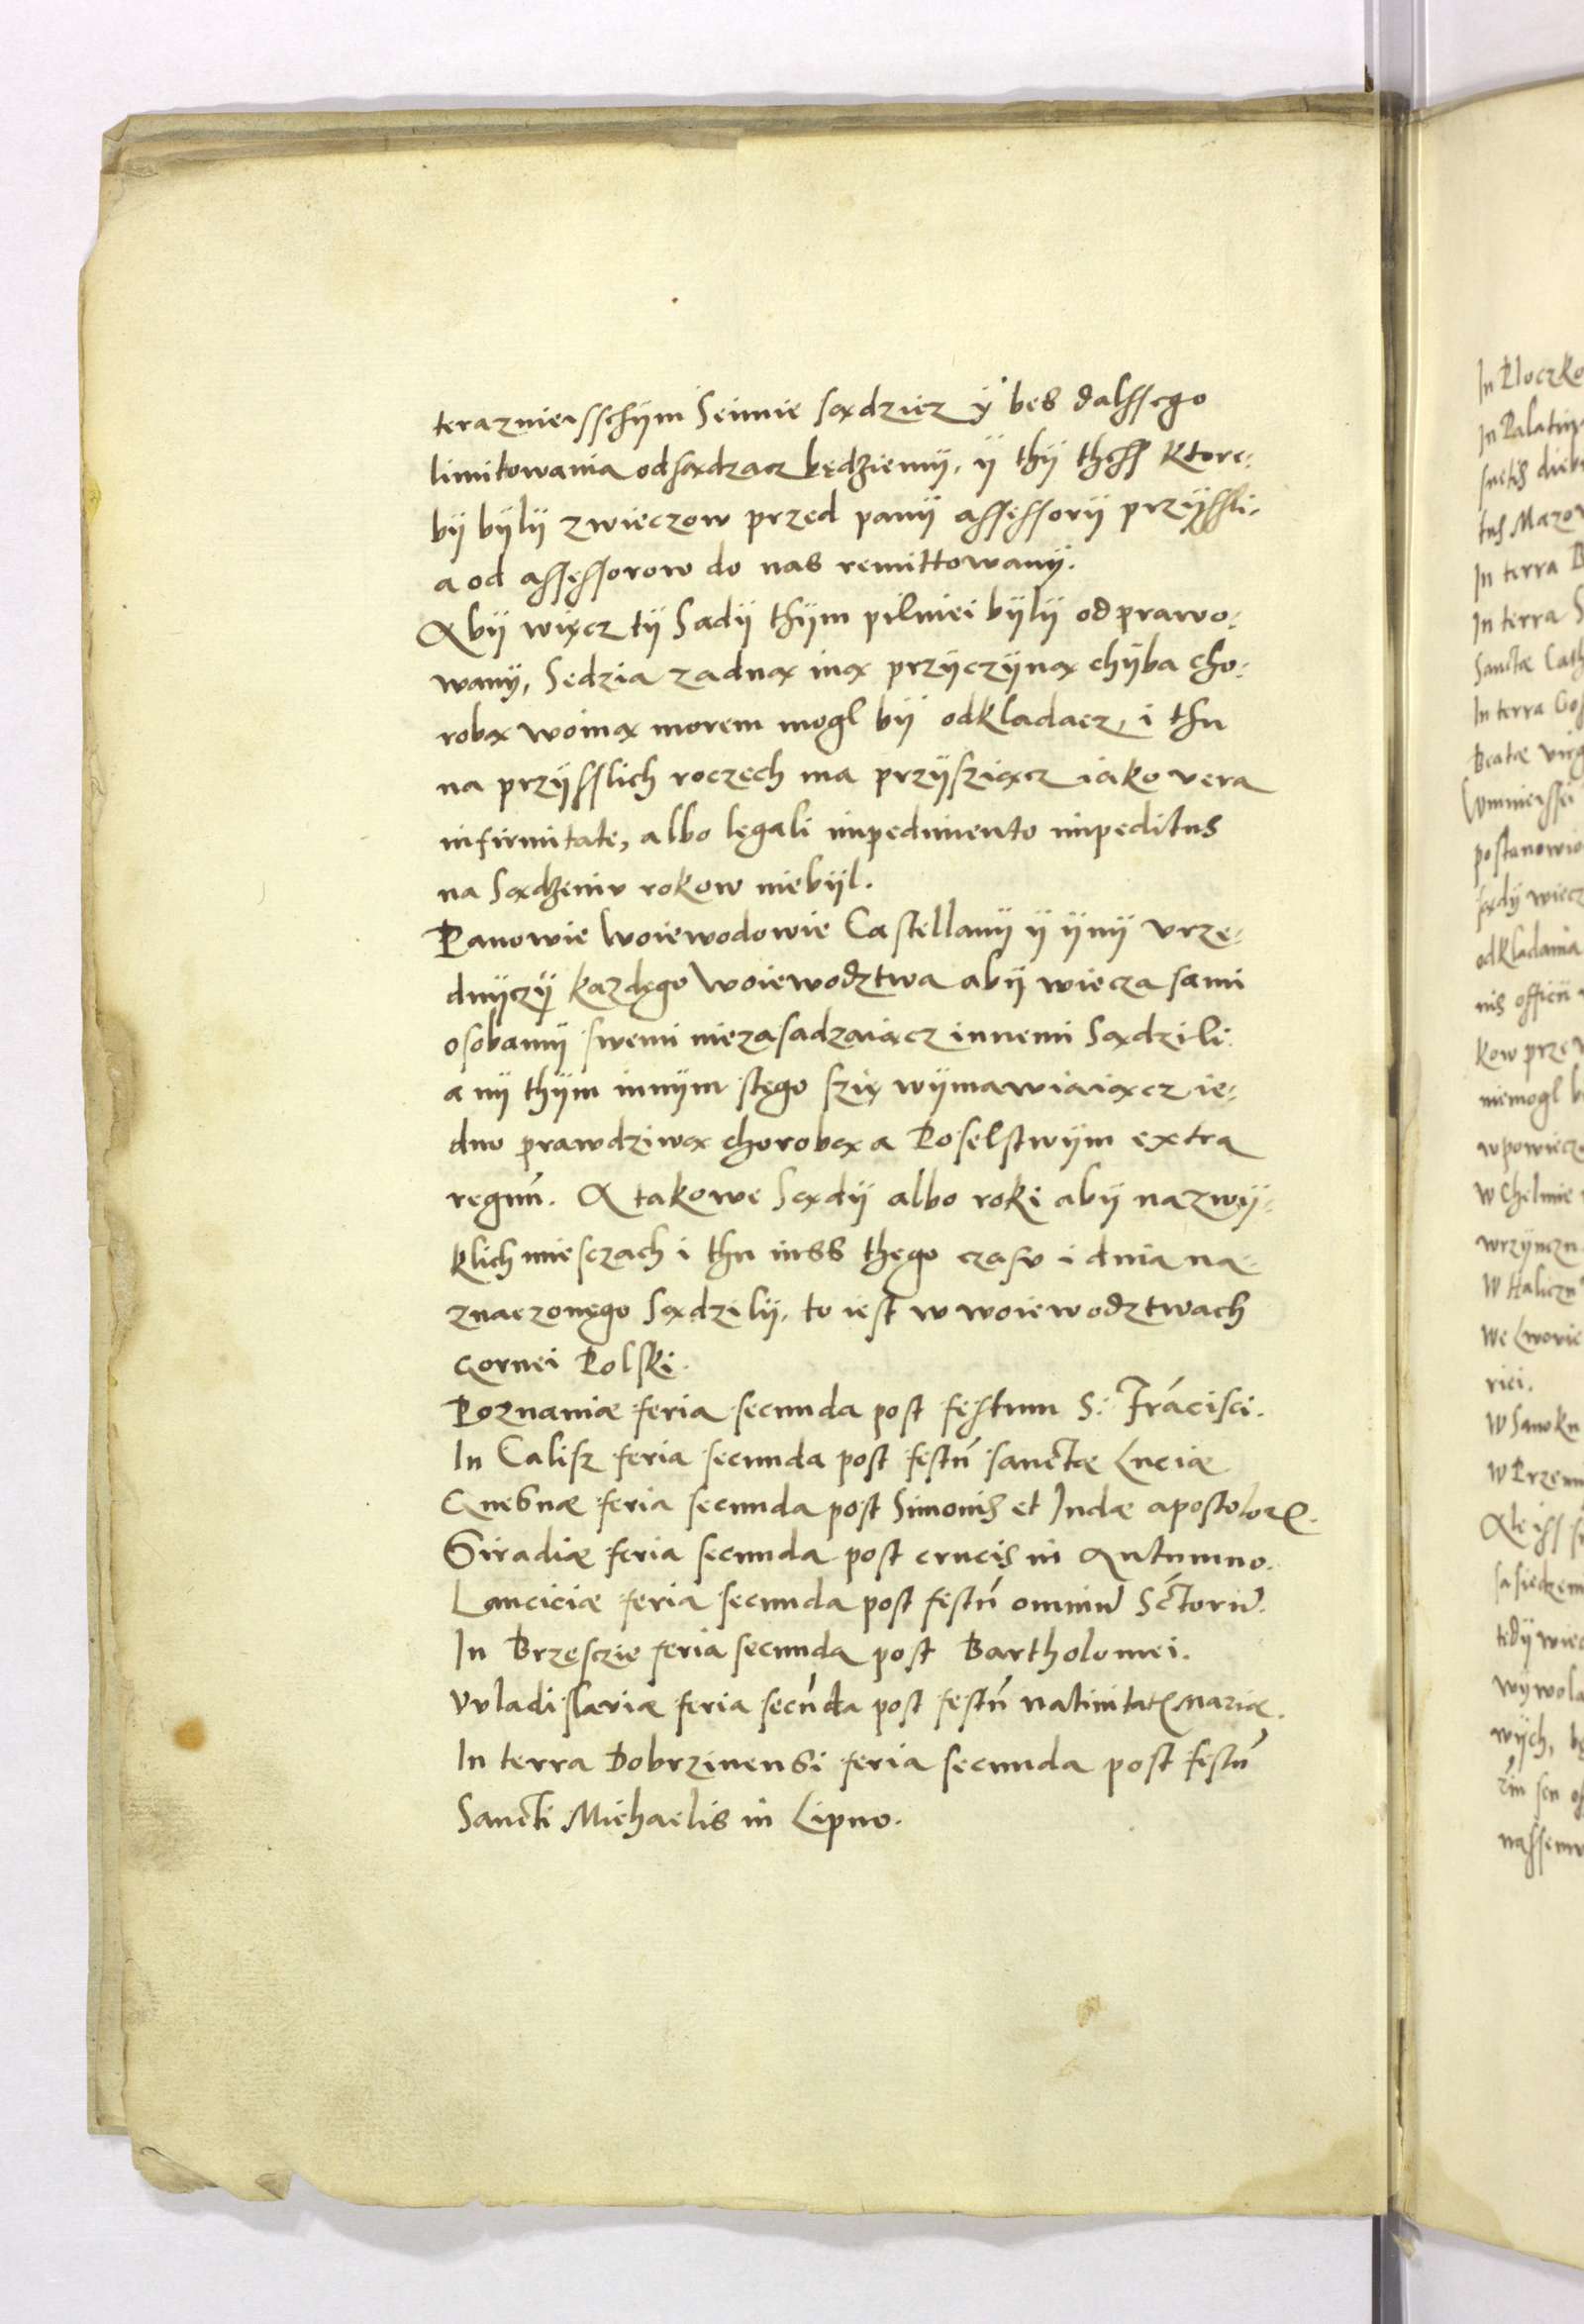 terazniersschÿm Seimie sądzicz ÿ bes dalssego
limitowania odsądzacz będziemÿ, ÿ thÿ thess ktore-
bÿ bÿlÿ zwieczow przed panÿ assessorÿ przÿssli,
a od assessorow do nas remittowanÿ.
Abÿ więcz tÿ Sadÿ thÿm pilniei bÿlÿ odprawo-
wanÿ, Sedzia zadną iną przÿczÿną chÿba cho-
robą woiną morem mogl bÿ odkladacz, i thu
na przÿsslich roczech ma przÿsziącz iako vera
infirmitate, albo legali impedimento impeditus
na Sądzeniv rokow niebÿl.
Panowie Woiewodowie Castellanÿ ÿ ÿnÿ vrzę-
dnÿczÿ kazdęgo Woiewodztwa abÿ wiecza sami
osobamÿ swemi niezasadzaiącz innemi Sądzili
a nÿ thÿm innÿm stęgo szię wÿmawiaiącz ie-
dno prawdziwą chorobą a Poselstwÿm extra
regnū. A takowe Sądÿ albo roki abÿ nazwÿ-
klich miesczach i thu inss thęgo czasv i dnia na-
znaczonęgo Sądzilÿ, to iest w woiewodztwach
Gornei Polski.
Poznaniæ feria secunda post festum S. Frācisci.
In Calisz feria secunda post festū sanctæ Luciæ
Gnesnæ feria secunda post Simonis et Iudæ apostolorꝝ.
Siradiæ feria secunda post crucis in Autumno.
Lanciciæ feria secunda post festū omniū Sctoriū.
In Brzęsczie feria secunda post Bartholomei.
Vvladislaviæ feria secūda post festū natiuitatꝭ Mariæ.
In terra Dobrzinensi feria secunda post festū
Sancti Michaelis in Lipno.
In Ploczko
In Palatin
tus Mazow
In terra
In terra S
Sanctæ Cath
In terra Gos
Beatæ virg
postanowio
sądÿ wiecz
odkladania
nis officii
kow prze
niemogl b
W Chelmie
W Haliczu
We Lwowie
rici.
W Sanoku
W Przem
tedÿ wiec
wÿwola
wÿch, bę